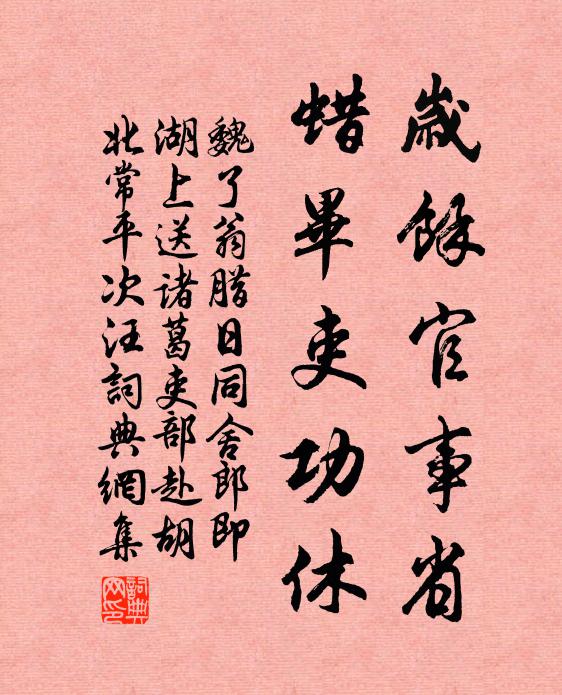 歲餘官事省
蜡畢吏功休
魏了翁腊日同舍郎即
湖上送諸葛吏部赴胡
北常平次汪詞典網集
詞典網印